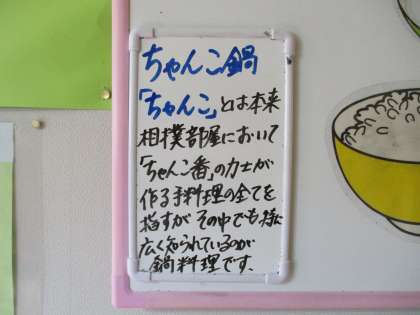 ちゃんこ鍋
「ちゃんこ」とは本来
相撲部屋において
「ちゃんこ番」の力士が
作る手料理の全てを
指すがその中でも特に
広く知られているのが
鍋料理です。